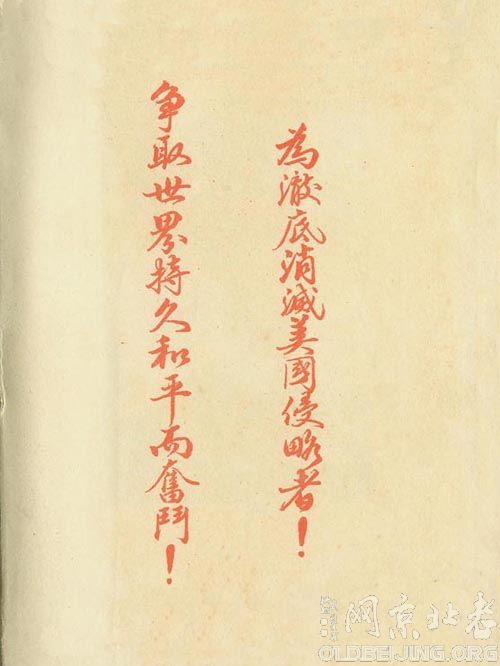 為澈底消滅美國侵略者！
争取世界持久和平而奮鬥！
老北京网
OLDBEIJING.ORG